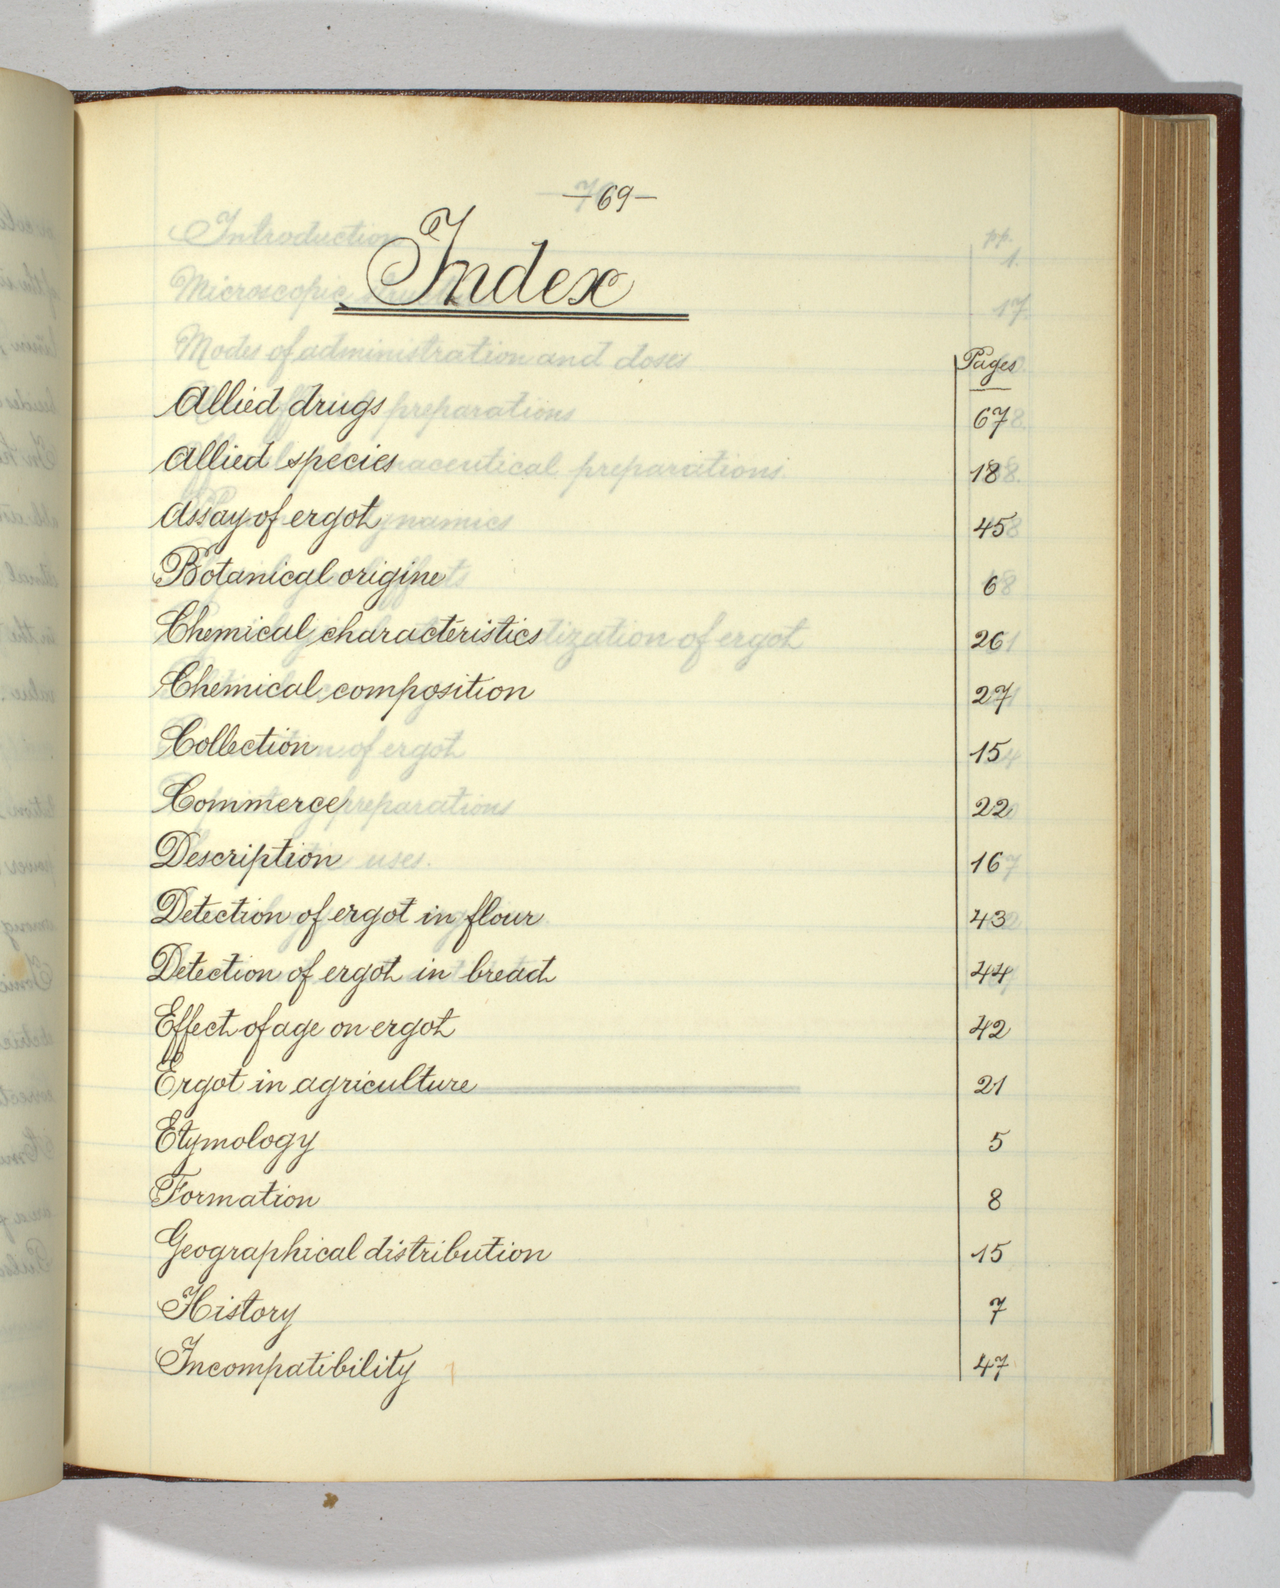 —69—
Index
Pages
Allied drugs 67
Allied species 18
Assay of ergot 45
Botanical origine 6
Chemical characteristics 26
Chemical composition 27
Collection 15
Commerce 22
Description 16
Detection of ergot in flour 43
Detection of ergot in bread 44
Effect of age on ergot 42
Ergot in agriculture 21
Etymology 5
Formation 8
Geographical distribution 15
History 7
Incompatibility 47